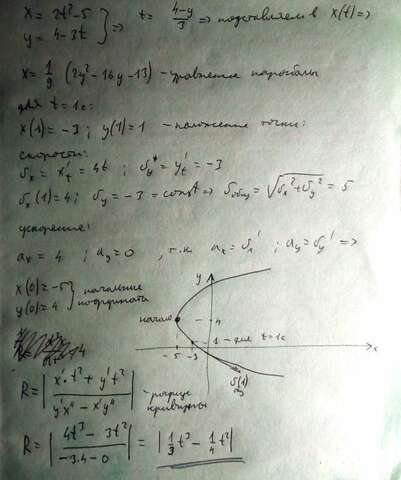 x = 2t² - 5
y = 4 - 3t } => t = (4-y)/3 => подставляем в x(t) =>
x = 1/9 (2y² - 16y - 13) - уравнение параболы
для t = 1с:
x(1) = -3 ; y(1) = 1 - положение точки:
скорости:
υx = x't = 4t ; υy = y't = -3
υx(1) = 4 ; υy = -3 = const => υобщ = √(υx² + υy²) = 5
ускорение:
ax = 4 ; ay = 0 , т.к. ax = υx' ; ay = υy' =>
x(0) = -5
y(0) = 4 } начальные координаты
y
начало
4
1 - для t = 1с
-5 -3
x
υ(1)
R = | (x'·t² + y't²) / (y'x" - x'y") | - радиус кривизны
R = | (4t³ - 3t²) / (-3·4 - 0) | = | 1/3 t³ - 1/4 t² |